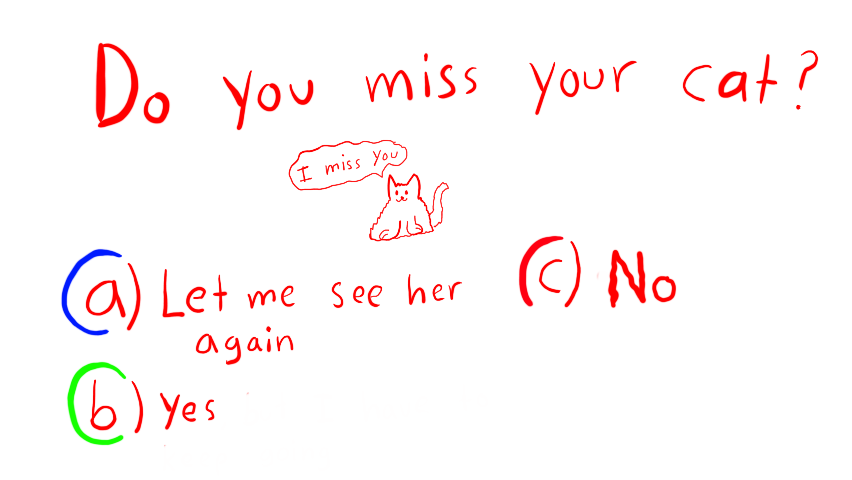 Do you miss your cat?
I miss you
(a) Let me see her
again
(b) Yes
(c) No